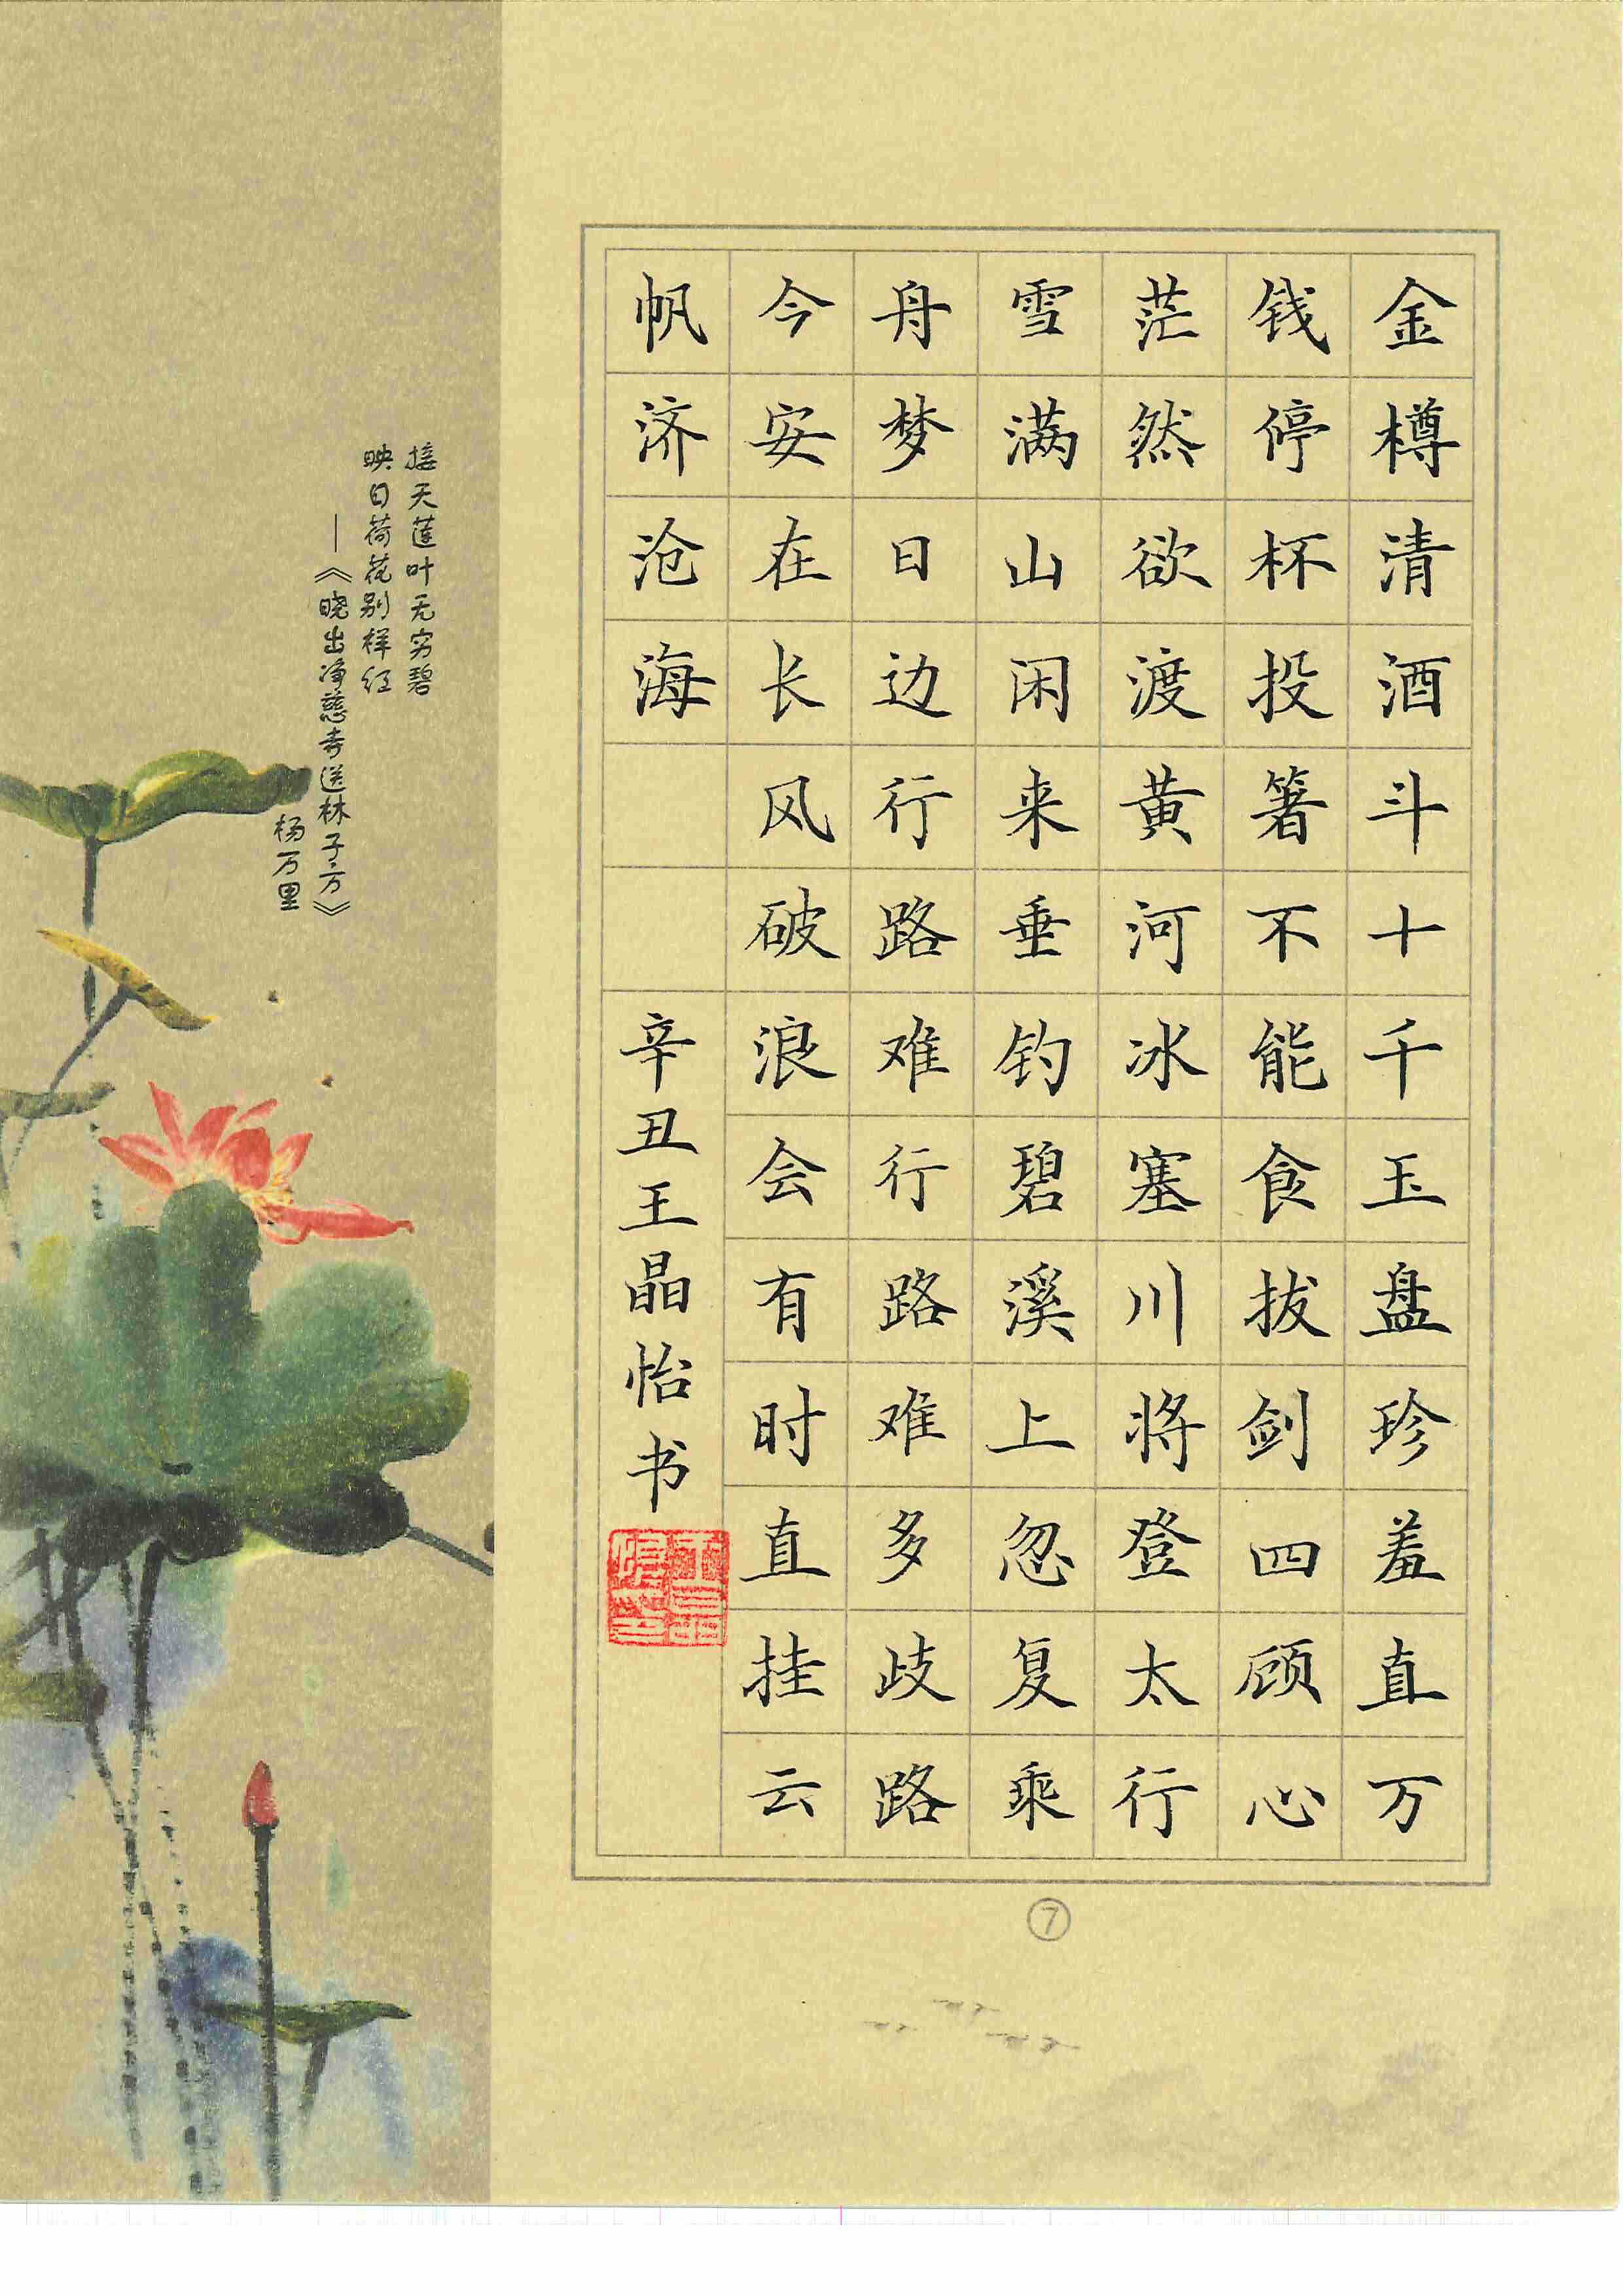 金樽清酒斗十千玉盘珍羞直万
钱停杯投箸不能食拔剑四顾心
茫然欲渡黄河冰塞川将登太行
雪满山闲来垂钓碧溪上忽复乘
舟梦日边行路难行路难多歧路
今安在长风破浪会有时直挂云
帆济沧海
辛丑王晶怡书
接天莲叶无穷碧
映日荷花别样红
—《晓出净慈寺送林子方》
杨万里
⑦